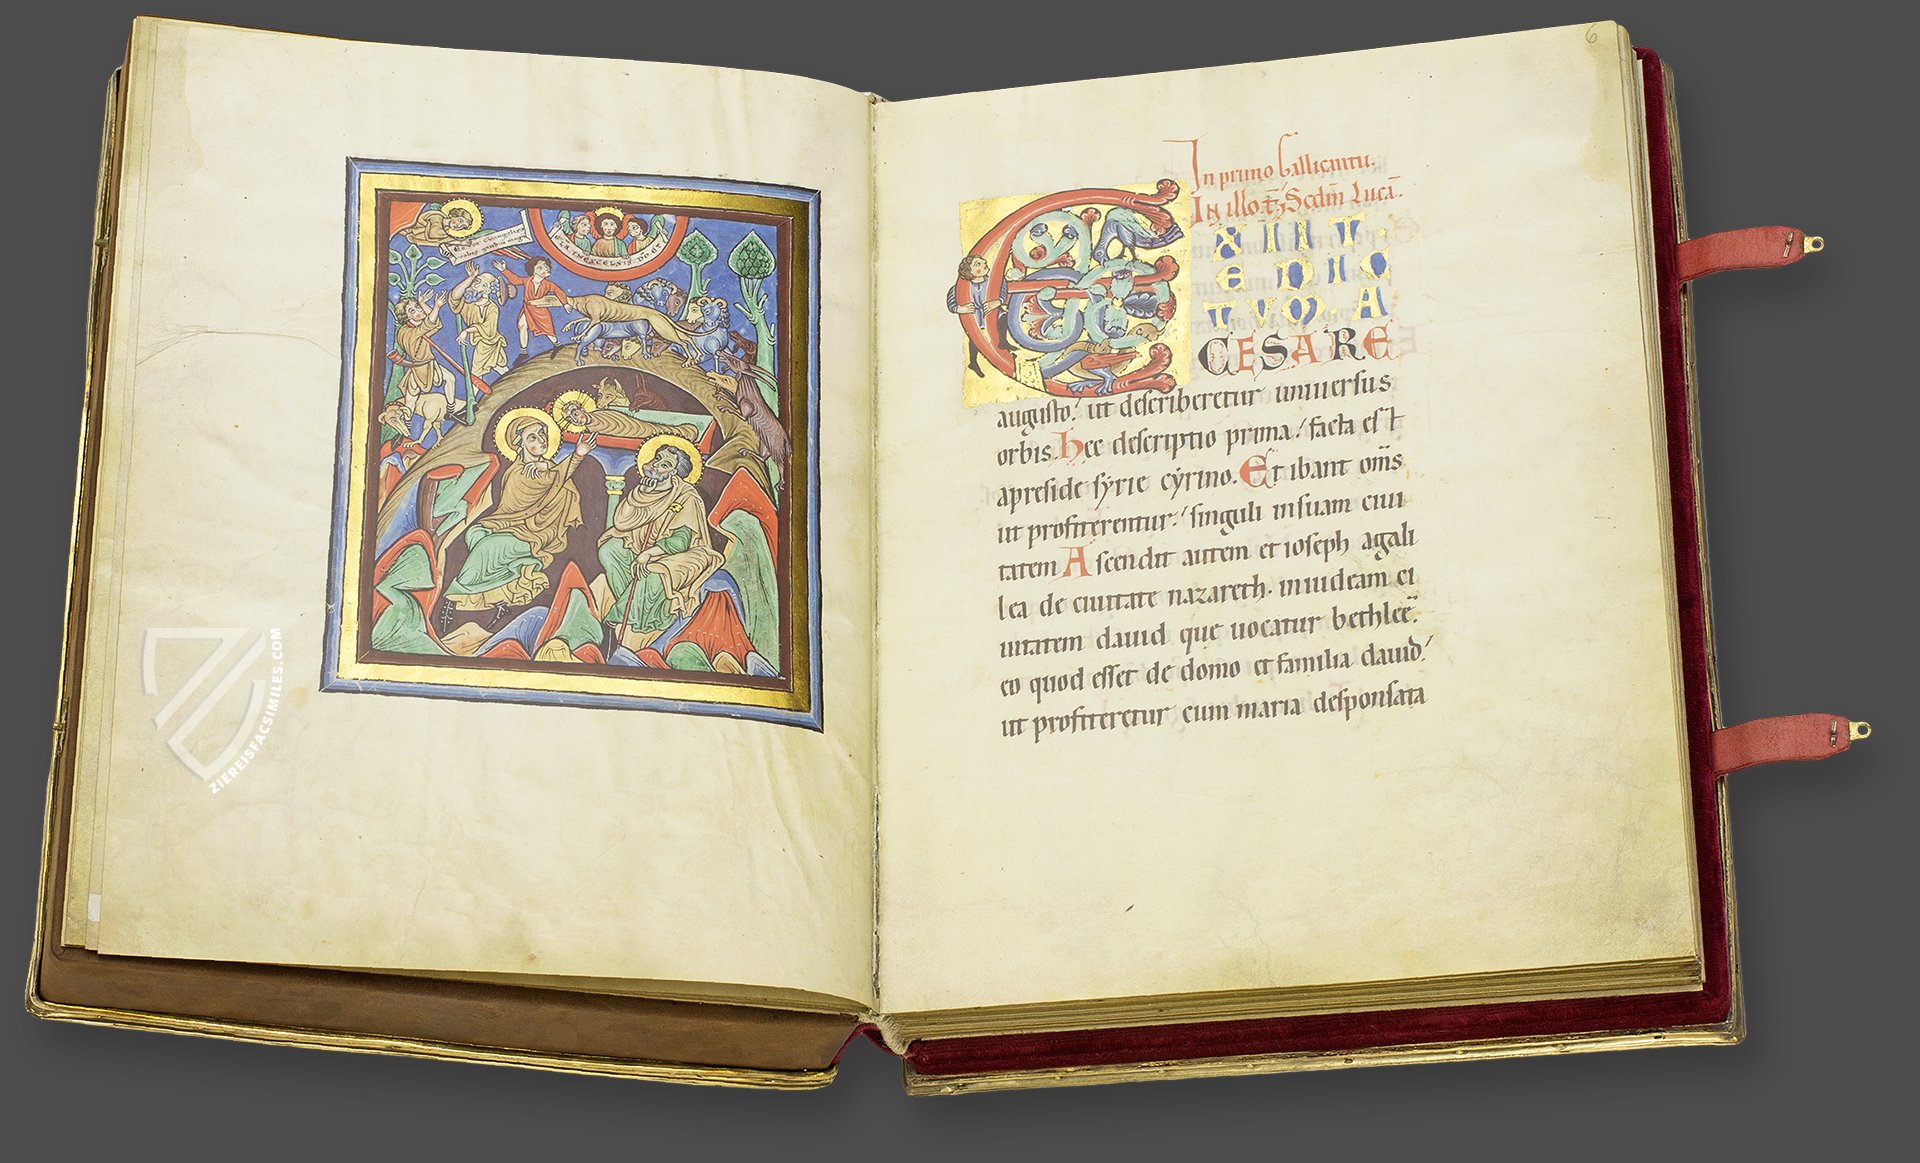 GL̅A IN EXCELSIS DEO ET
6
In primo Gallicantu.
IN illo t̅. Scd̅m Lucā.
EXIIT.
EDIC
TVM A
CESARE
augusto. ut describeretur universus
orbis. Hec descriptio prima. facta est
apreside syrie cyrino. Et ibant om̅s
ut profiterentur. singuli insuam ciui
tatem Ascendit autem et ioseph agali
lea de ciuitate nazareth. iniudeam ci
uitatem dauid quę uocatur bethleē.
eo quod esset de domo et familia dauid.
ut profiteretur cum maria desponsata
ZIEREISFACSIMILES.COM